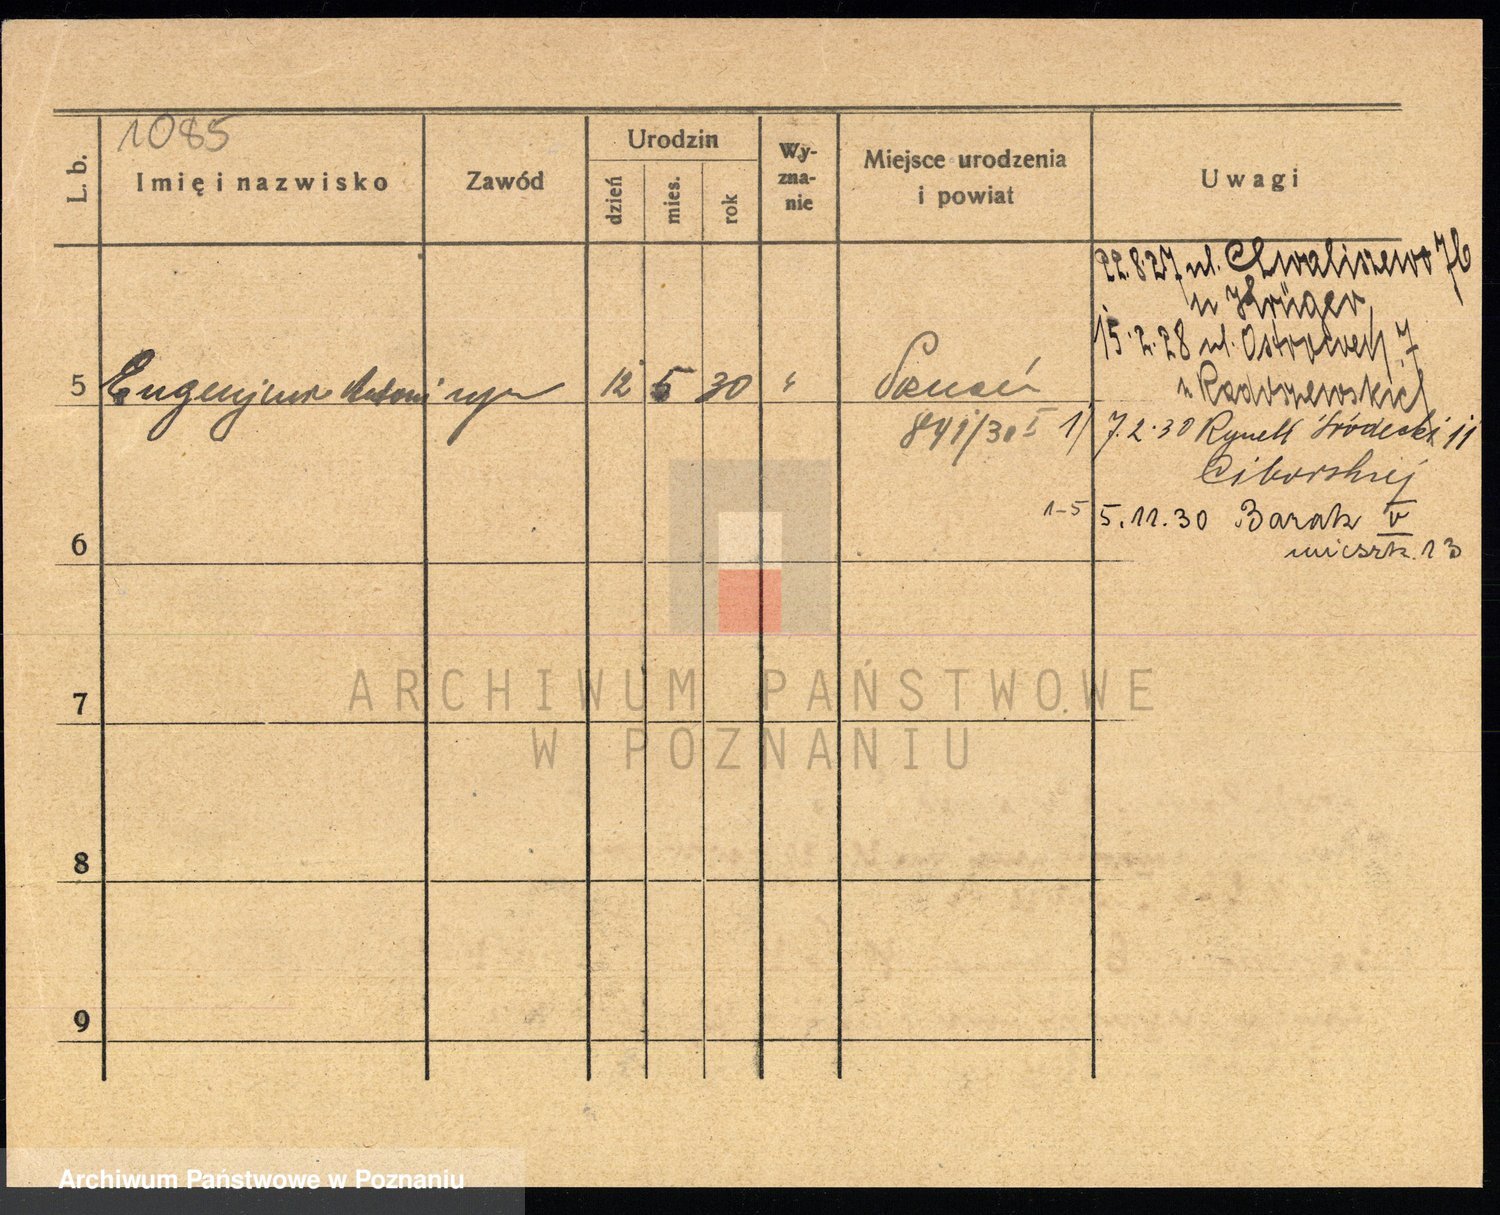 1085
L. b.
Imię i nazwisko
Zawód
Urodzin
dzień
mies.
rok
Wy-
zna-
nie
Miejsce urodzenia
i powiat
Uwagi
22.8.27 ul. Chwaliszewo 76
u Krüger
15.2.28 ul. Ostrówek 7
u Radoszewskich
5 Eugenjusz Antoni syn 12 5 30 " Poznań
841/30 I 1/ 7.2.30 Rynek Śródecki 11
Ciborskiej
1-5 5.11.30 Barak V
mieszk. 13
6
7
8
9
ARCHIWUM PAŃSTWOWE
W POZNANIU
Archiwum Państwowe w Poznaniu